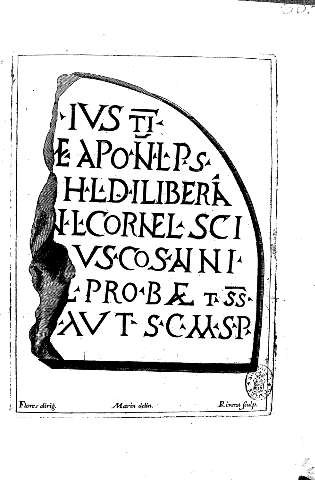 ·IVS TI·
E APO·N·L·P·S·
H·L·D·ILIBERA
N·L·CORNEL·SCI
VS·COS·ANNI·
L·PRO·B Æ T·SS·
·AVT·S·C·M·S·P·
Flores dirig. Marin delin. Rivera sculp.